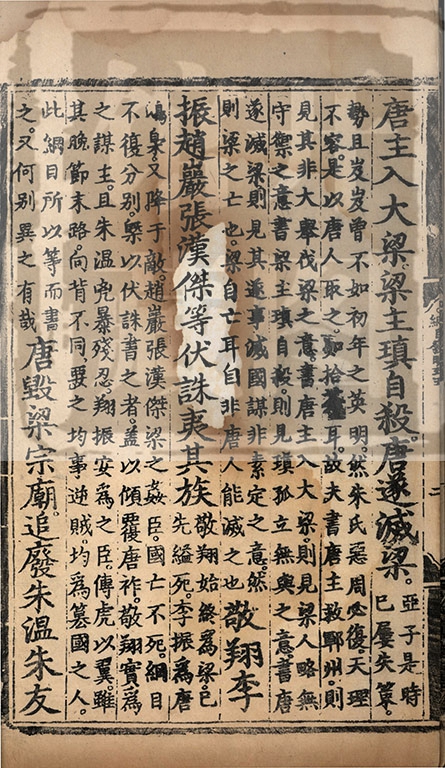 唐主入大梁梁主瑱自殺。唐遂滅梁。亞子是時
已屢失算。
勢且岌岌曾不如初年之英明。然朱氏惡周必復。天理
不容。是以唐人取之。如拾耳。故夫書唐主救鄆州。則
見其非大舉伐梁之意。書唐主入大梁。則見梁人略無
守禦之意書梁主瑱自殺。則見瑱孤立無與之意書唐
遂滅梁。則見其遂事滅國謀非素定之意。然
則梁之亡也。梁自亡耳自非唐人能滅之也
敬翔李
振趙巖張漢傑等伏誅夷其族
敬翔始終為梁。已
先縊死。李振為唐
鴟梟。又降于敵趙巖張漢傑梁之姦臣。國亡不死。綱目
不復分别。槩以伏誅書之者。蓋以傾覆唐祚。敬翔實為
之謀主。且朱溫兇暴殘忍翔振安為之臣。傅虎以翼。雖
其晚節末路。向背不同。要之均事逆賊。均為篡國之人。
此綱目所以等而書
之。又何别異之有哉
唐毀梁宗廟。追廢朱溫朱友
二